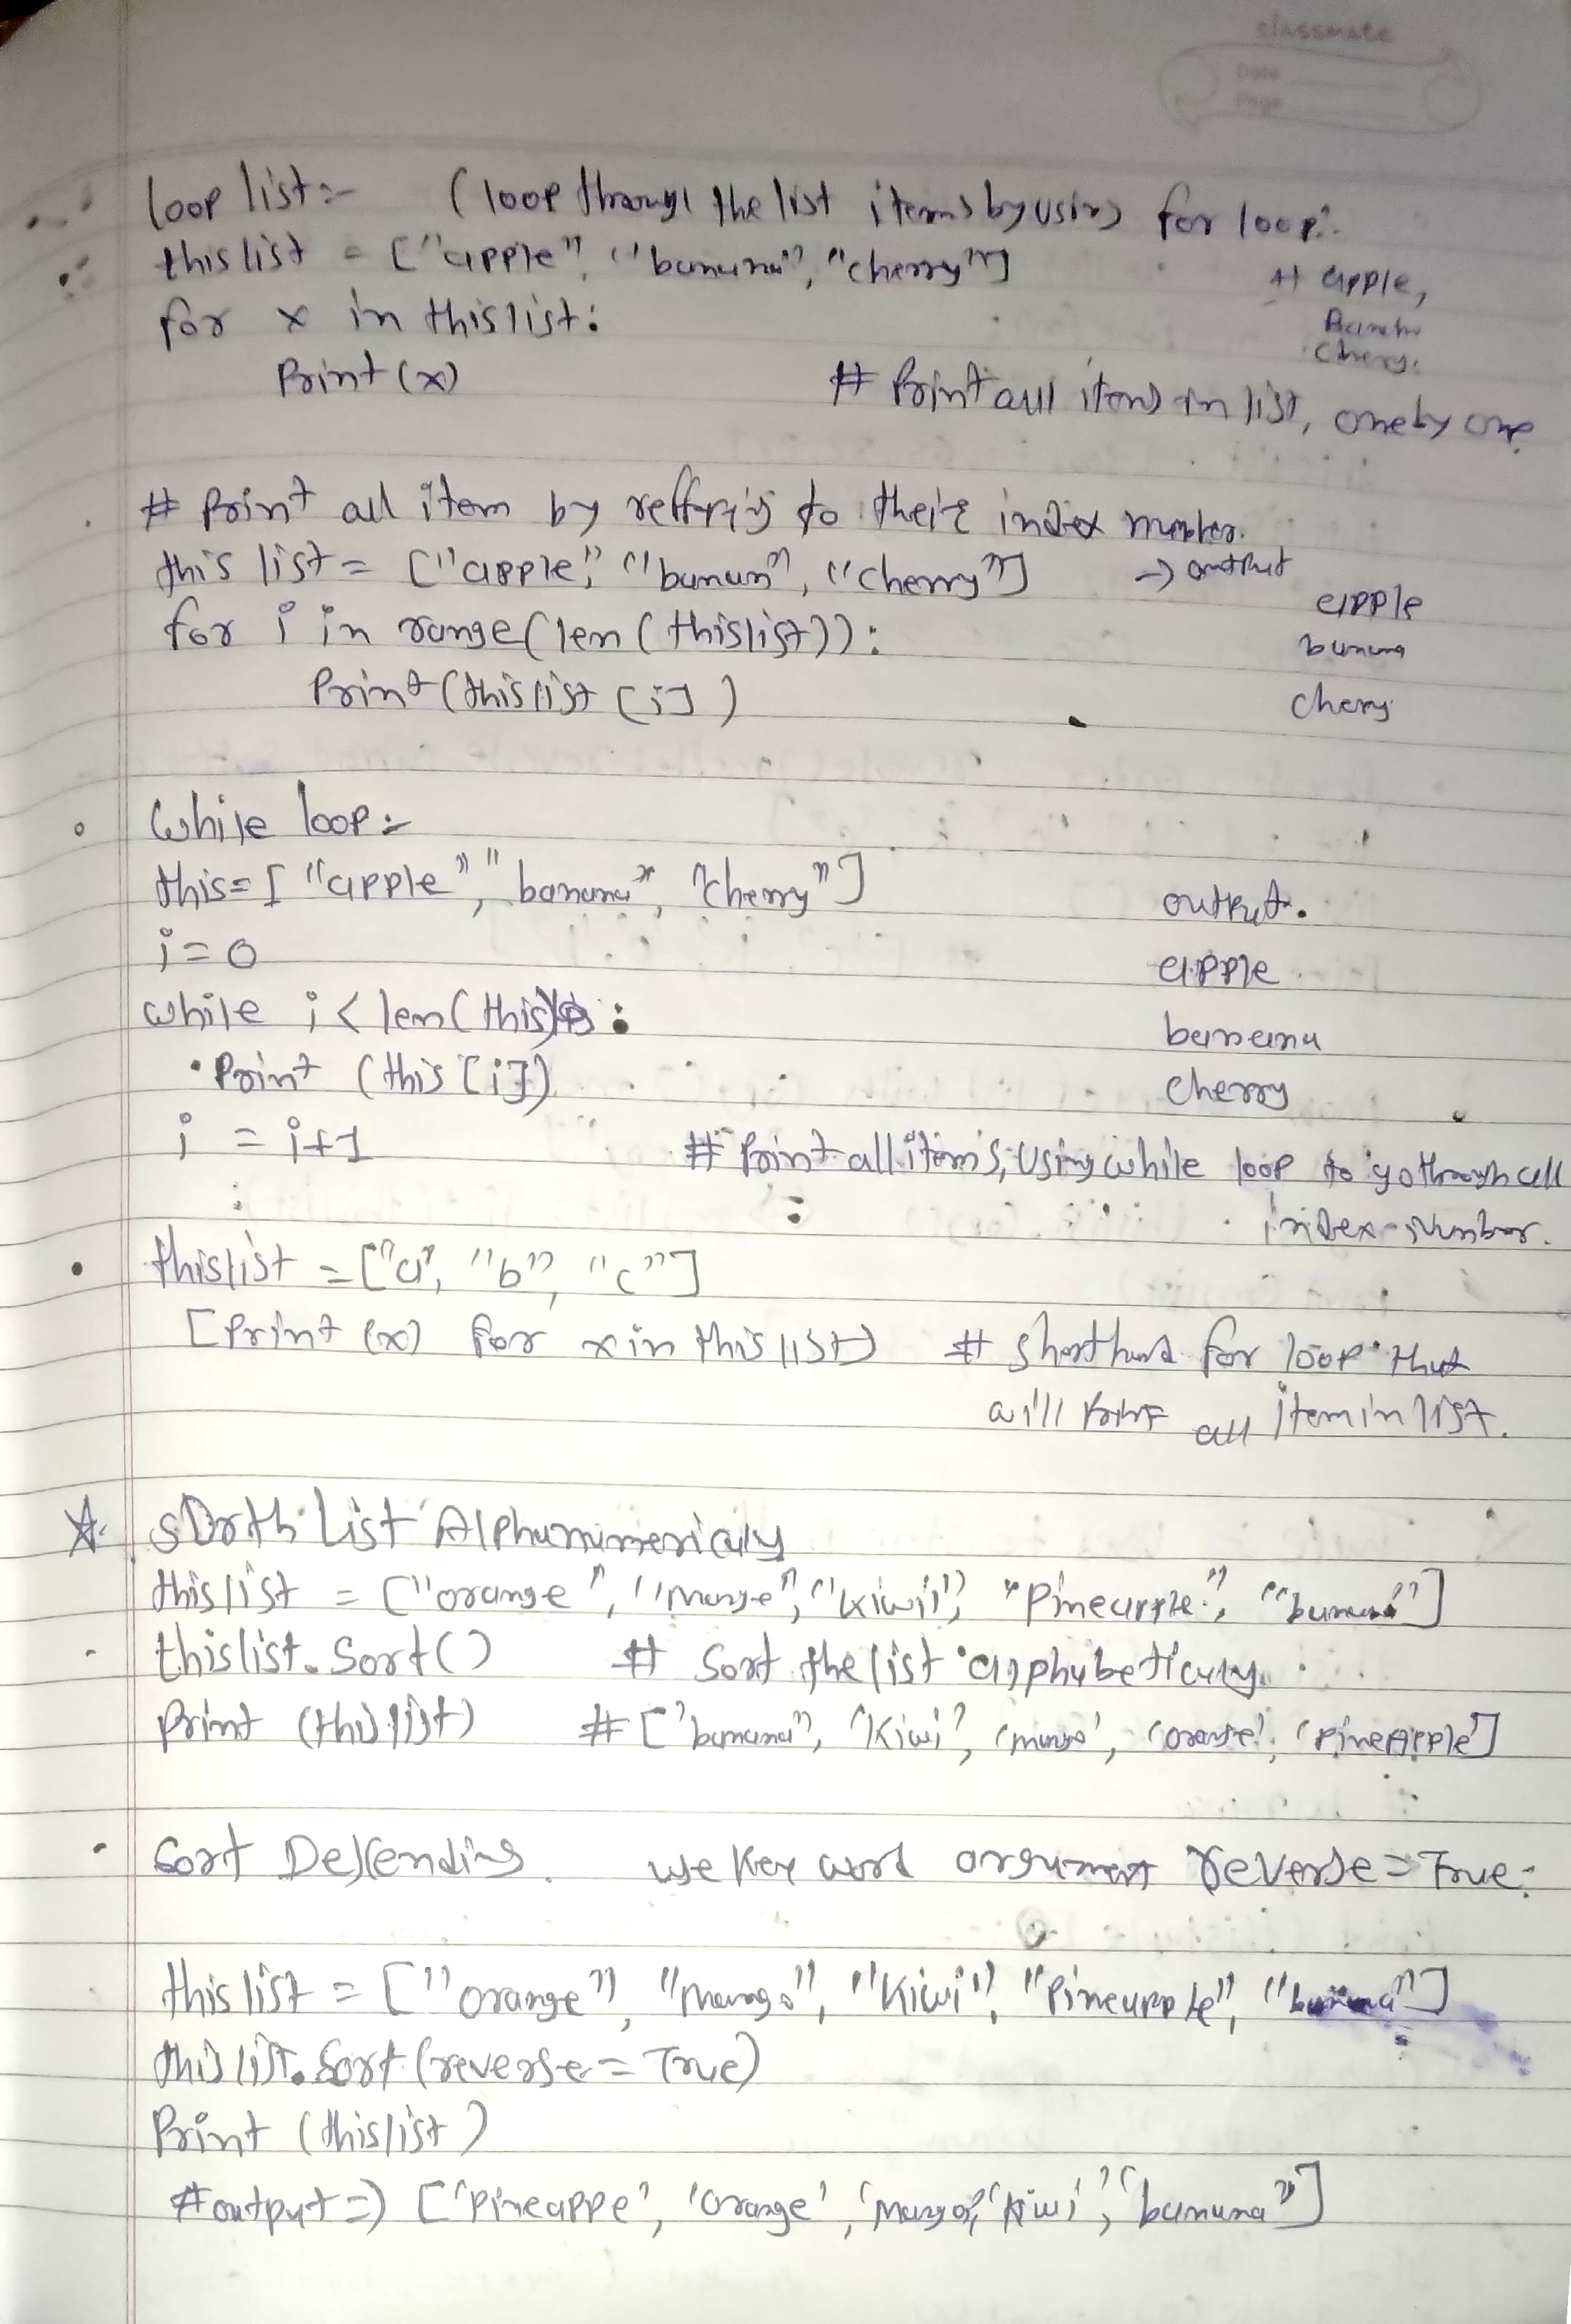 classmate
Date
Page
loop list:- (loop through the list items by using for loop:
thislist = ["apple", "banana", "cherry"]
# apple,
for x in thislist:
Banana
cherry.
Print(x) # Print all items in list, one by one
# Print all item by reffering to their index number.
this list = ["apple", "banana", "cherry"] -> output
apple
for i in range(len(thislist)):
banana
Print(thislist[i])
cherry
While loop:-
this = ["apple", "banana", "cherry"]
output.
i=0
apple
while i < len(this):
banana
Print (this[i])
cherry
i = i+1 # Print all items, using while loop to go through all
index number.
thislist = ["a", "b", "c"]
[Print (x) for x in this list] # short hand for loop that
will print all item in list.
List Alphanumericaly
thislist = ["orange", "mango", "kiwi", "Pineapple", "banana"]
thislist.Sort() # Sort the list alphabetically.
Print (thislist) # ['banana', 'Kiwi', 'mango', 'orange', 'PineApple']
Sort Descending. use key word argument reverse = True:
this list = ["orange", "mango", "Kiwi", "Pineapple", "banana"]
this list.Sort(reverse = True)
Print (thislist)
#output => ['Pineappe', 'orange', 'mango', 'kiwi', 'banana']